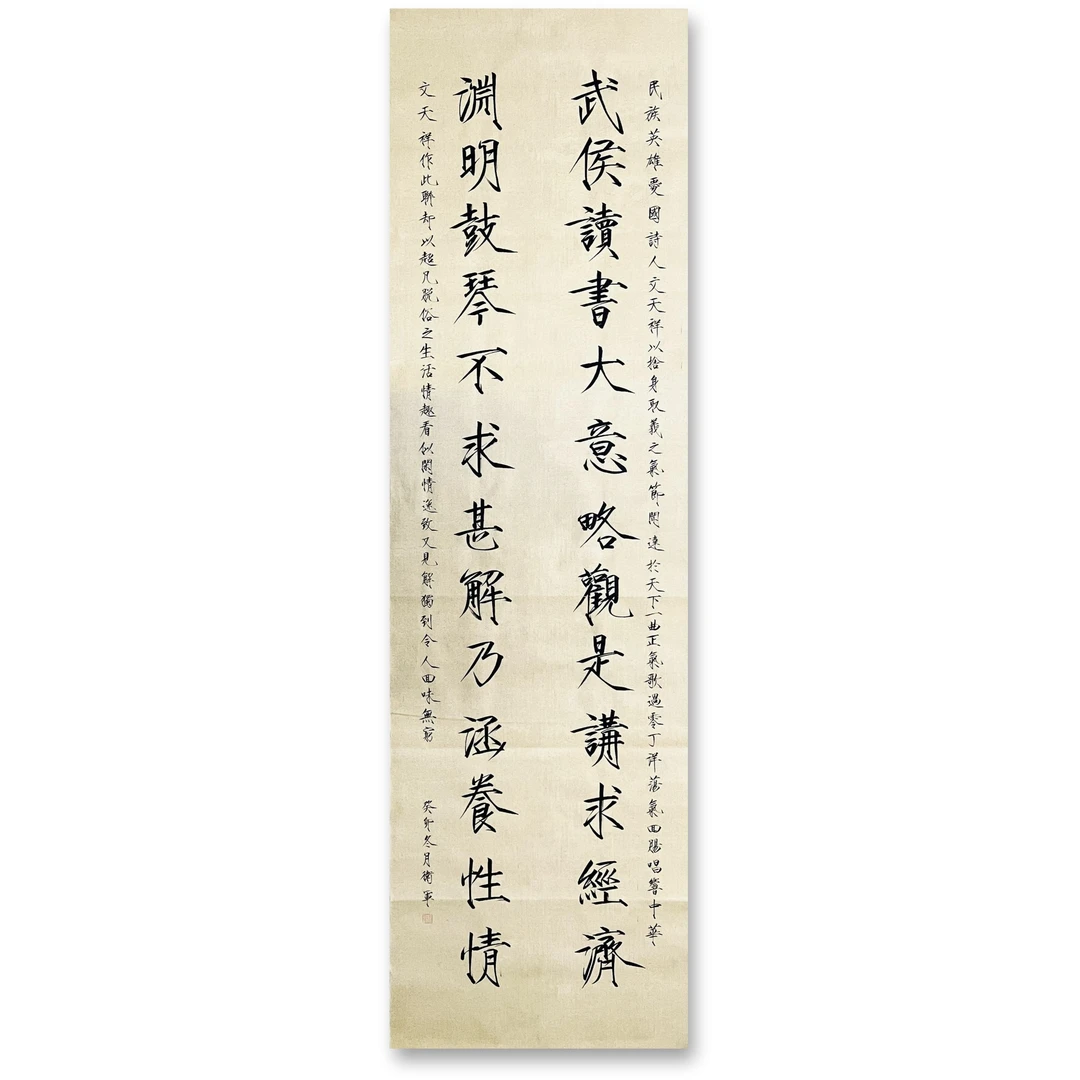 民族英雄愛國詩人文天祥以捨身取義之氣節聞達於天下一曲正氣歌過零丁洋蕩氣回腸唱響中華
武侯讀書大意略觀是講求經濟
淵明鼓琴不求甚解乃涵養性情
文天祥作此聯却以超凡脫俗之生活情趣看似閑情逸致又見解獨到令人回味無窮
癸卯冬月衛軍